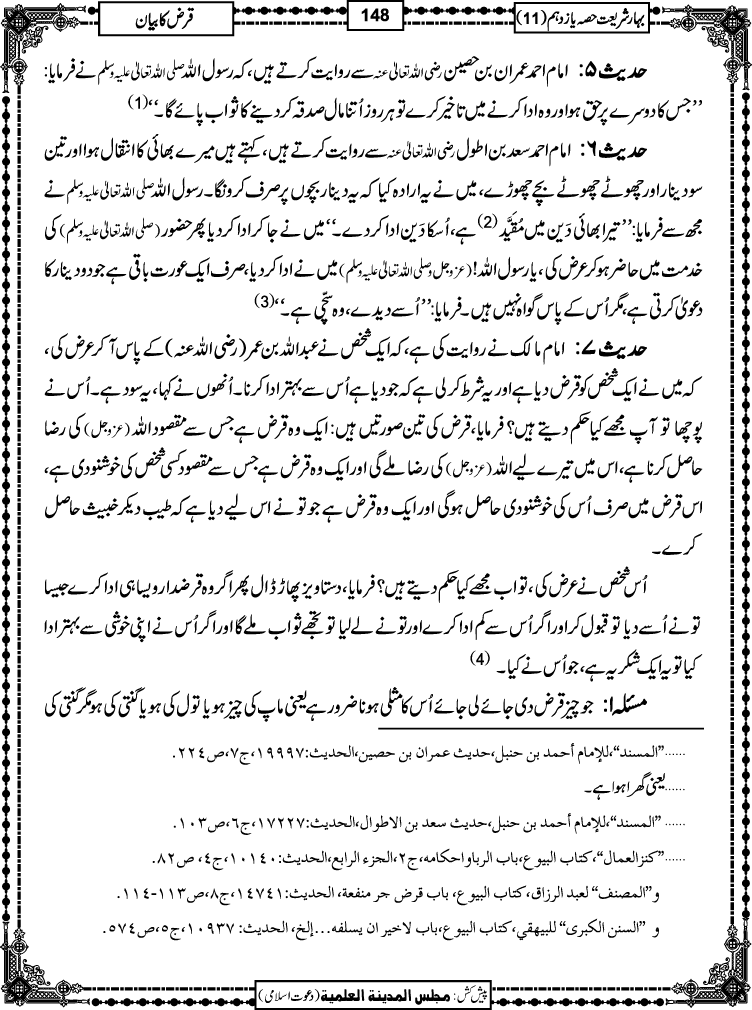 بہار شریعت حصہ یازدہم (11)
148
قرض کا بیان
حدیث ۵: امام احمد عمران بن حصین رضی اللہ تعالیٰ عنہ سے روایت کرتے ہیں، کہ رسول اللہ صلی اللہ تعالیٰ علیہ وسلم نے فرمایا:
’’جس کا دوسرے پر حق ہو اور وہ ادا کرنے میں تاخیر کرے تو ہر روز اُتنا مال صدقہ کر دینے کا ثواب پائے گا۔‘‘(1)
حدیث ۶: امام احمد سعد بن اطول رضی اللہ تعالیٰ عنہ سے روایت کرتے ہیں، کہتے ہیں میرے بھائی کا انتقال ہوا اور تین
سو دینار اور چھوٹے چھوٹے بچے چھوڑے، میں نے یہ ارادہ کیا کہ یہ دینار بچوں پر صرف کرونگا۔ رسول اللہ صلی اللہ تعالیٰ علیہ وسلم نے
مجھ سے فرمایا: ’’تیرا بھائی دَین میں مُقیَّد (2) ہے، اُسکا دَین ادا کر دے۔‘‘ میں نے جا کر ادا کر دیا پھر حضور (صلی اللہ تعالیٰ علیہ وسلم) کی
خدمت میں حاضر ہو کر عرض کی، یا رسول اللہ! (عزوجل و صلی اللہ تعالیٰ علیہ وسلم) میں نے ادا کر دیا، صرف ایک عورت باقی ہے جو دو دینار کا
دعویٰ کرتی ہے، مگر اُس کے پاس گواہ نہیں ہیں۔ فرمایا: ’’اُسے دیدے، وہ سچی ہے۔‘‘(3)
حدیث ۷: امام مالک نے روایت کی ہے، کہ ایک شخص نے عبداللہ بن عمر (رضی اللہ عنہ) کے پاس آ کر عرض کی،
کہ میں نے ایک شخص کو قرض دیا ہے اور یہ شرط کر لی ہے کہ جو دیا ہے اُس سے بہتر ادا کرنا۔ اُنھوں نے کہا، یہ سود ہے۔ اُس نے
پوچھا تو آپ مجھے کیا حکم دیتے ہیں؟ فرمایا، قرض کی تین صورتیں ہیں: ایک وہ قرض ہے جس سے مقصود اللہ (عزوجل) کی رضا
حاصل کرنا ہے، اس میں تیرے لیے اللہ (عزوجل) کی رضا ملے گی اور ایک وہ قرض ہے جس سے مقصود کسی شخص کی خوشنودی ہے،
اس قرض میں صرف اُس کی خوشنودی حاصل ہوگی اور ایک وہ قرض ہے جو تو نے اس لیے دیا ہے کہ طیب دیکر خبیث حاصل
کرے۔
اُس شخص نے عرض کی، تو اب مجھے کیا حکم دیتے ہیں؟ فرمایا، دستاویز پھاڑ ڈال پھر اگر وہ قرضدار ویسا ہی ادا کرے جیسا
تو نے اُسے دیا تو قبول کر اور اگر اُس سے کم ادا کرے اور تو نے لے لیا تو تجھے ثواب ملے گا اور اگر اُس نے اپنی خوشی سے بہتر ادا
کیا تو یہ ایک شکریہ ہے، جو اُس نے کیا۔ (4)
مسئلہ ۱: جو چیز قرض دی جائے لی جائے اُس کا مثلی ہونا ضرور ہے یعنی ماپ کی چیز ہو یا تول کی ہو یا گنتی کی ہو مگر گنتی کی
......”المسند“،للإمام أحمد بن حنبل،حديث عمران بن حصين،الحديث:١٩٩٩٧،ج٧،ص٢٢٤.
......یعنی گھرا ہوا ہے۔
...... ”المسند“،للإمام أحمد بن حنبل،حديث سعد بن الاطوال،الحديث:١٧٢٢٧،ج٦،ص١٠٣.
......”كنزالعمال“،كتاب البيوع،باب الربا واحكامه،ج٢،الجزء الرابع،الحديث:١٠١٤٠،ج٤، ص٨٢.
و”المصنف“ لعبد الرزاق،كتاب البيوع، باب قرض جر منفعة، الحديث:١٤٧٤١،ج٨،ص١١٣-١١٤.
و ”السنن الكبرى“ للبيهقي،كتاب البيوع،باب لاخير ان يسلفه...إلخ، الحديث: ١٠٩٣٧،ج٥،ص٥٧٤.
پیش کش: مجلس المدینة العلمیة (دعوت اسلامی)